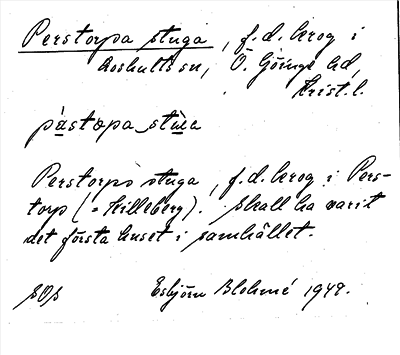 Perstorpa stuga, f.d. krog i
Loshults sn, Ö. Göinge hd,
Krist. l.
pàstɷpa stùa
Perstorps stuga, f.d. krog i Pers-
torp (= Killeberg). Skall ha varit
det första huset i samhället.
SOS Esbjörn Blohmé 1948.